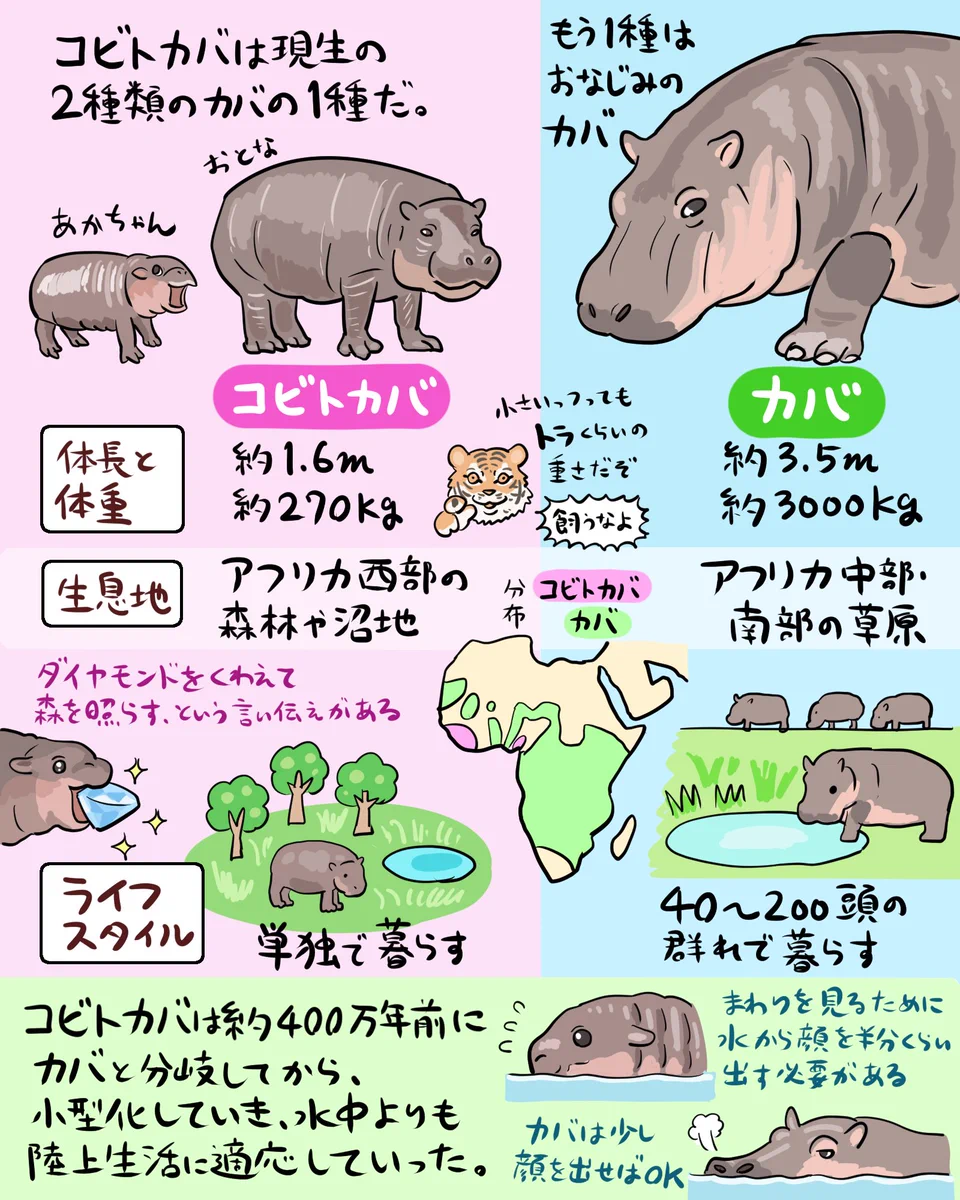 コビトカバは現生の
2種類のカバの1種だ。
おとな
あかちゃん
もう1種は
おなじみの
カバ
コビトカバ
カバ
体長と
体重
約1.6m
約270kg
小さいっつっても
トラくらいの
重さだぞ
飼うなよ
約3.5m
約3000kg
生息地
アフリカ西部の
森林や沼地
分布
コビトカバ
カバ
アフリカ中部・
南部の草原
ダイヤモンドをくわえて
森を照らす、という言い伝えがある
ライフ
スタイル
単独で暮らす
40〜200頭の
群れで暮らす
コビトカバは約400万年前に
カバと分岐してから、
小型化していき、水中よりも
陸上生活に適応していった。
まわりを見るために
水から顔を半分くらい
出す必要がある
カバは少し
顔を出せばOK